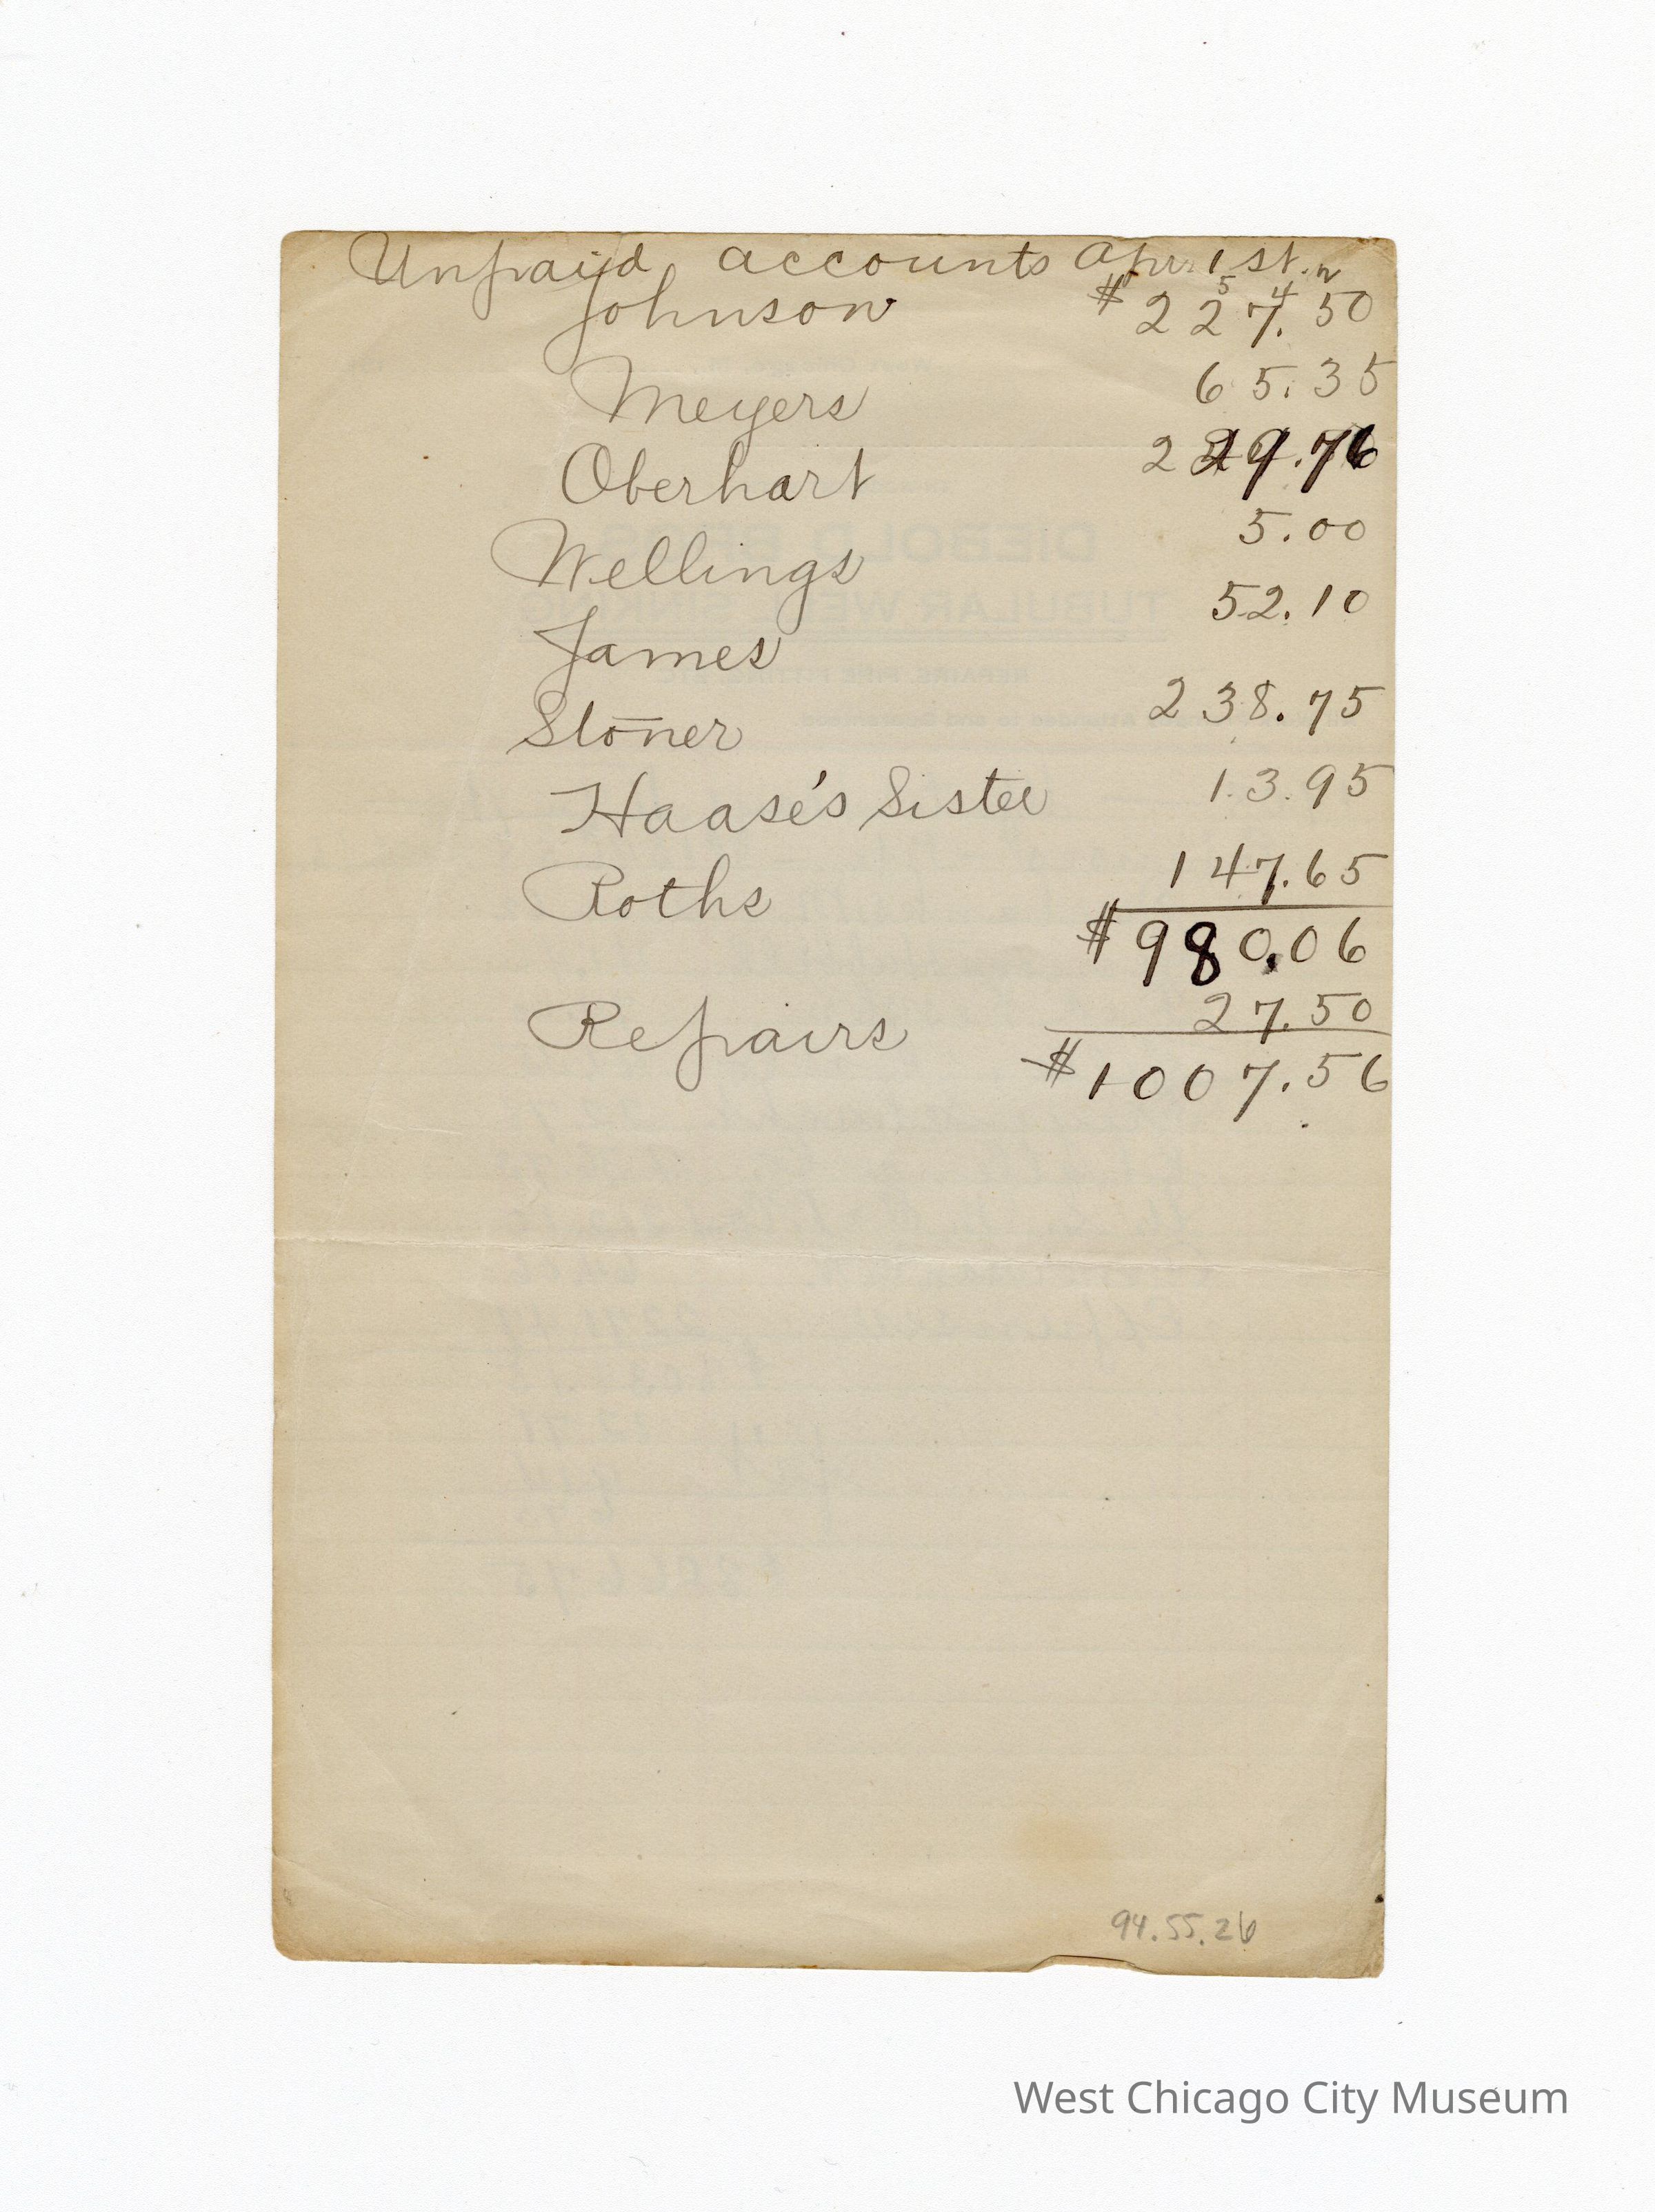 Unpaid accounts Apr 1st.
5 4
Johnson $227.50
Meyers 65.35
Oberhart 229.76
Wellings 5.00
James 52.10
Stoner 238.75
Haase's Sister 13.95
Roths 147.65
$980.06
Repairs 27.50
$1007.56
94.55.26
West Chicago City Museum